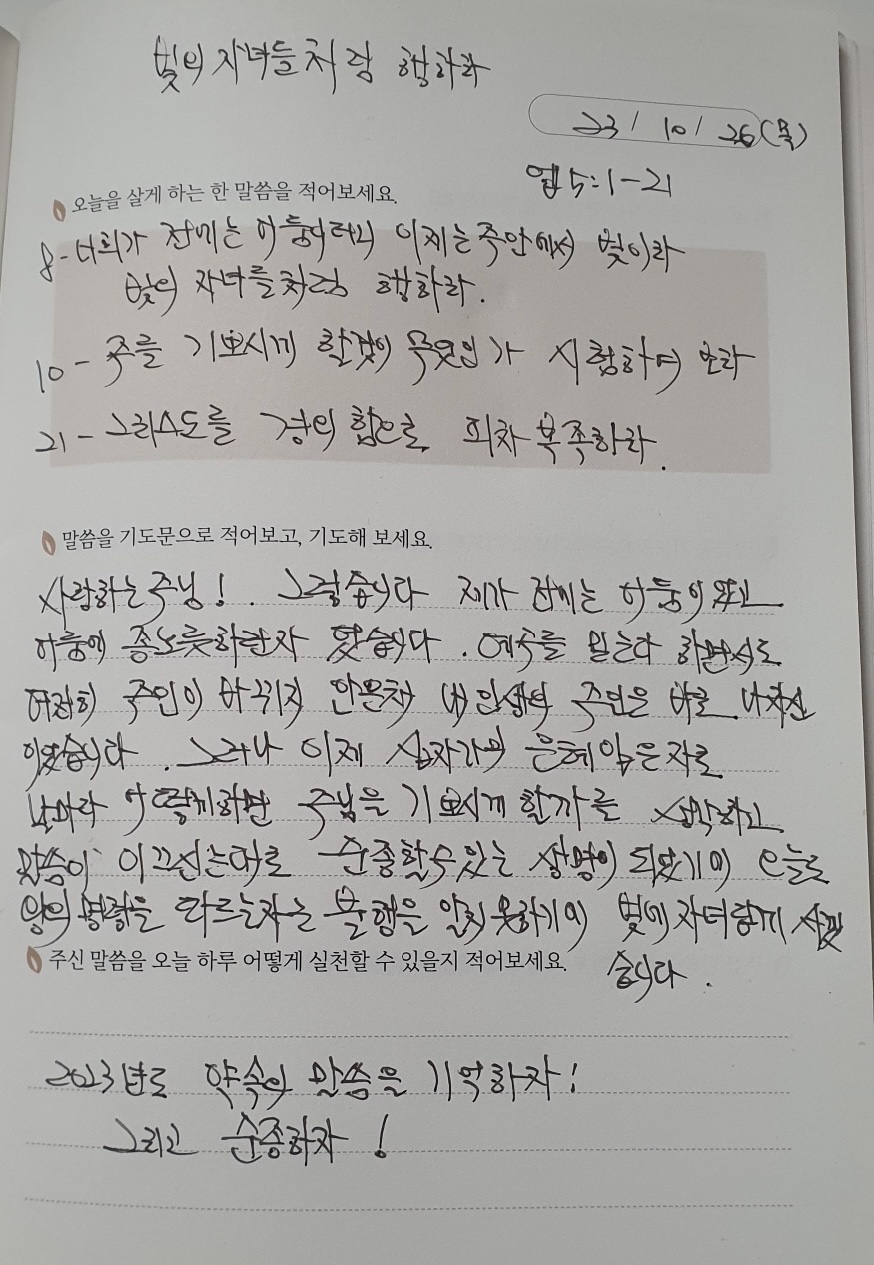 빛의 자녀들처럼 행하라
23/10/26(목)
엡5:1-21
오늘을 살게 하는 한 말씀을 적어보세요.
8-너희가 전에는 어둠이더니 이제는 주안에서 빛이라
빛의 자녀들처럼 행하라.
10- 주를 기쁘시게 할것이 무엇인가 시험하여 보라
21- 그리스도를 경외함으로 피차 복종하라.
말씀을 기도문으로 적어보고, 기도해 보세요.
사랑하는 주님! 그렇습니다 제가 전에는 어둠이었고
어둠에 종노릇하던자 였습니다. 예수를 믿는다 하면서도
여전히 주인이 바뀌지 안은채 내 인생의 주인은 바로 나 자신
이었습니다. 그러나 이제 십자가의 은혜 입은 자로
날마다 어떻게하면 주님을 기쁘시게 할까를 생각하고
말씀이 이끄신는대로 순종할수 있는 생명이 되었기에 오늘도
왕의 명령을 따르는자는 불행을 알지 못하기에 빛에 자녀답게 살겠
습니다.
주신 말씀을 오늘 하루 어떻게 실천할 수 있을지 적어보세요.
2023년도 약속의 말씀을 기억하자!
그리고 순종하자!